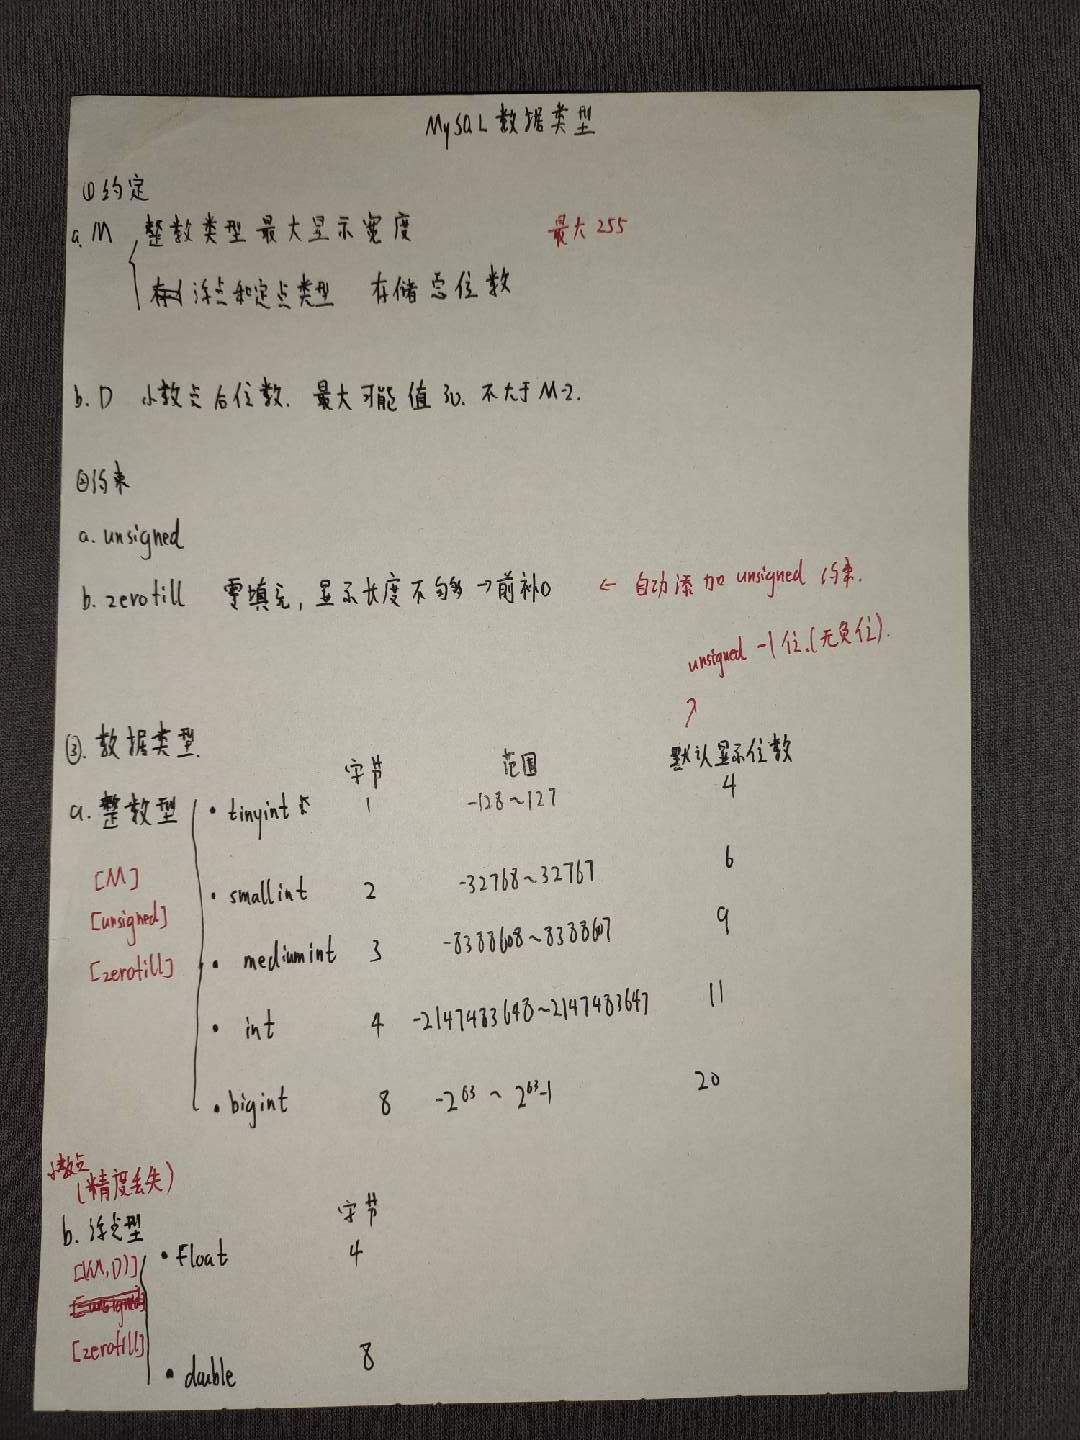 MySQL 数据类型
①约定
a. M 整数类型最大显示宽度 最大255
浮点和定点类型 存储总位数
b. D 小数点后位数. 最大可能值30. 不大于M-2.
②约束
a. unsigned
b. zerofill 零填充, 显示长度不够→前补0 ← 自动添加 unsigned 约束.
unsigned -1位.(无负位).
↗
③. 数据类型.
字节 范围 默认显示位数
a. 整数型 • tinyint 1 -128~127 4
[M]
• smallint 2 -32768~32767 6
[unsigned]
• mediumint 3 -8388608~8388607 9
[zerofill]
• int 4 -2147483648~2147483647 11
• bigint 8 -2⁶³ ~ 2⁶³-1 20
小数点
(精度丢失)
字节
b. 浮点型
• Float 4
[(M,D)]
[unsigned]
[zerofill]
• double 8